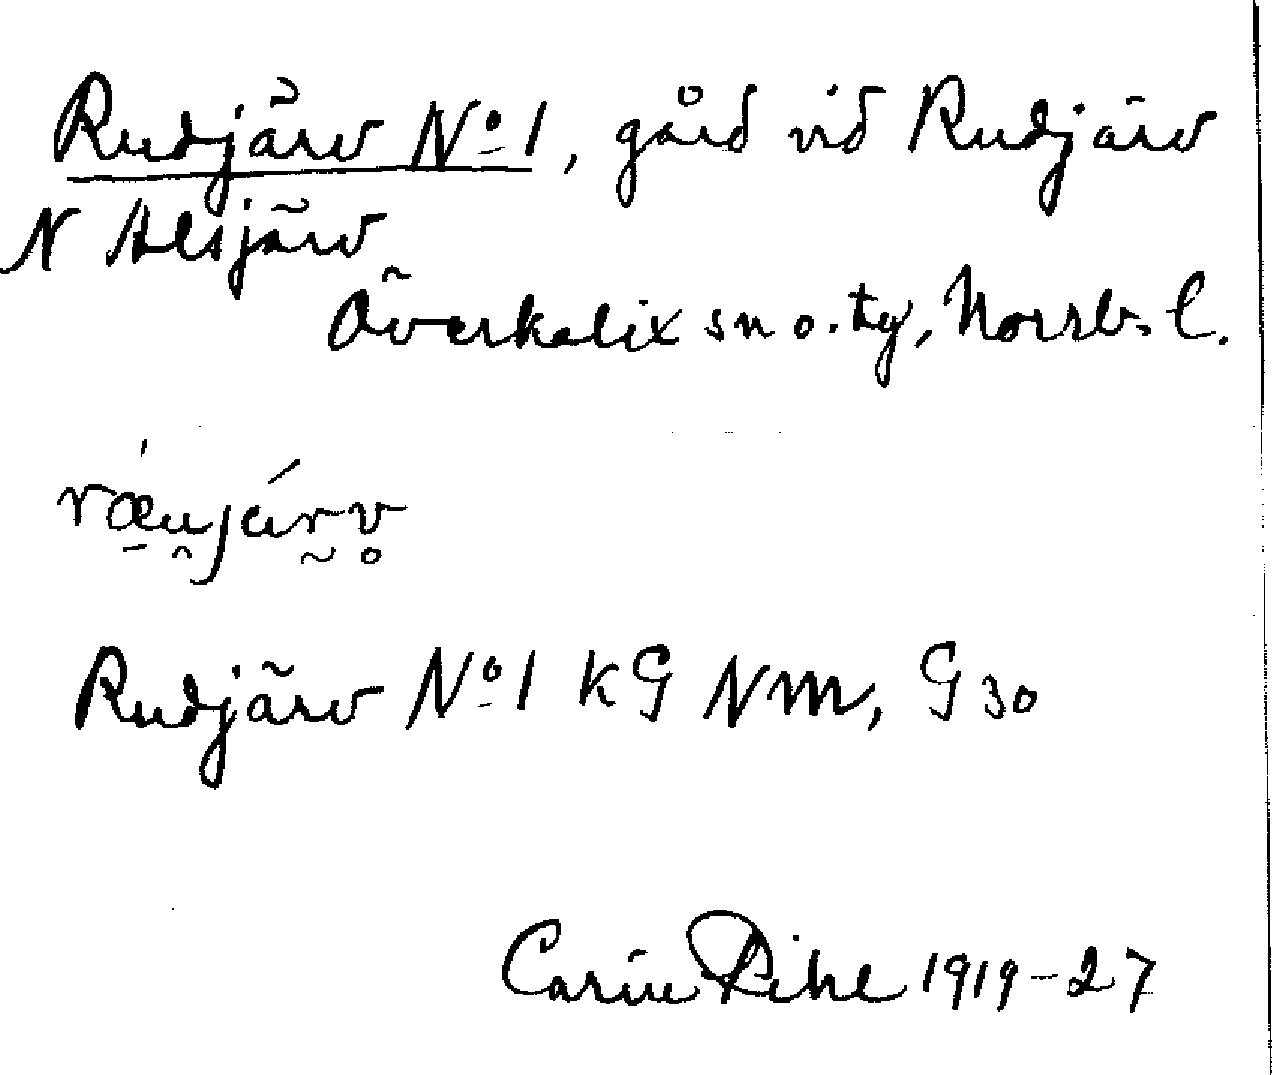 Rudjärv No 1, gård vid Rudjärv
N Alsjärv
Överkalix sn o. tg, Norrb. l.
rǽ̱u̯járv̥
Rudjärv No 1 KG NM, G 30
Carin Pihl 1919-27